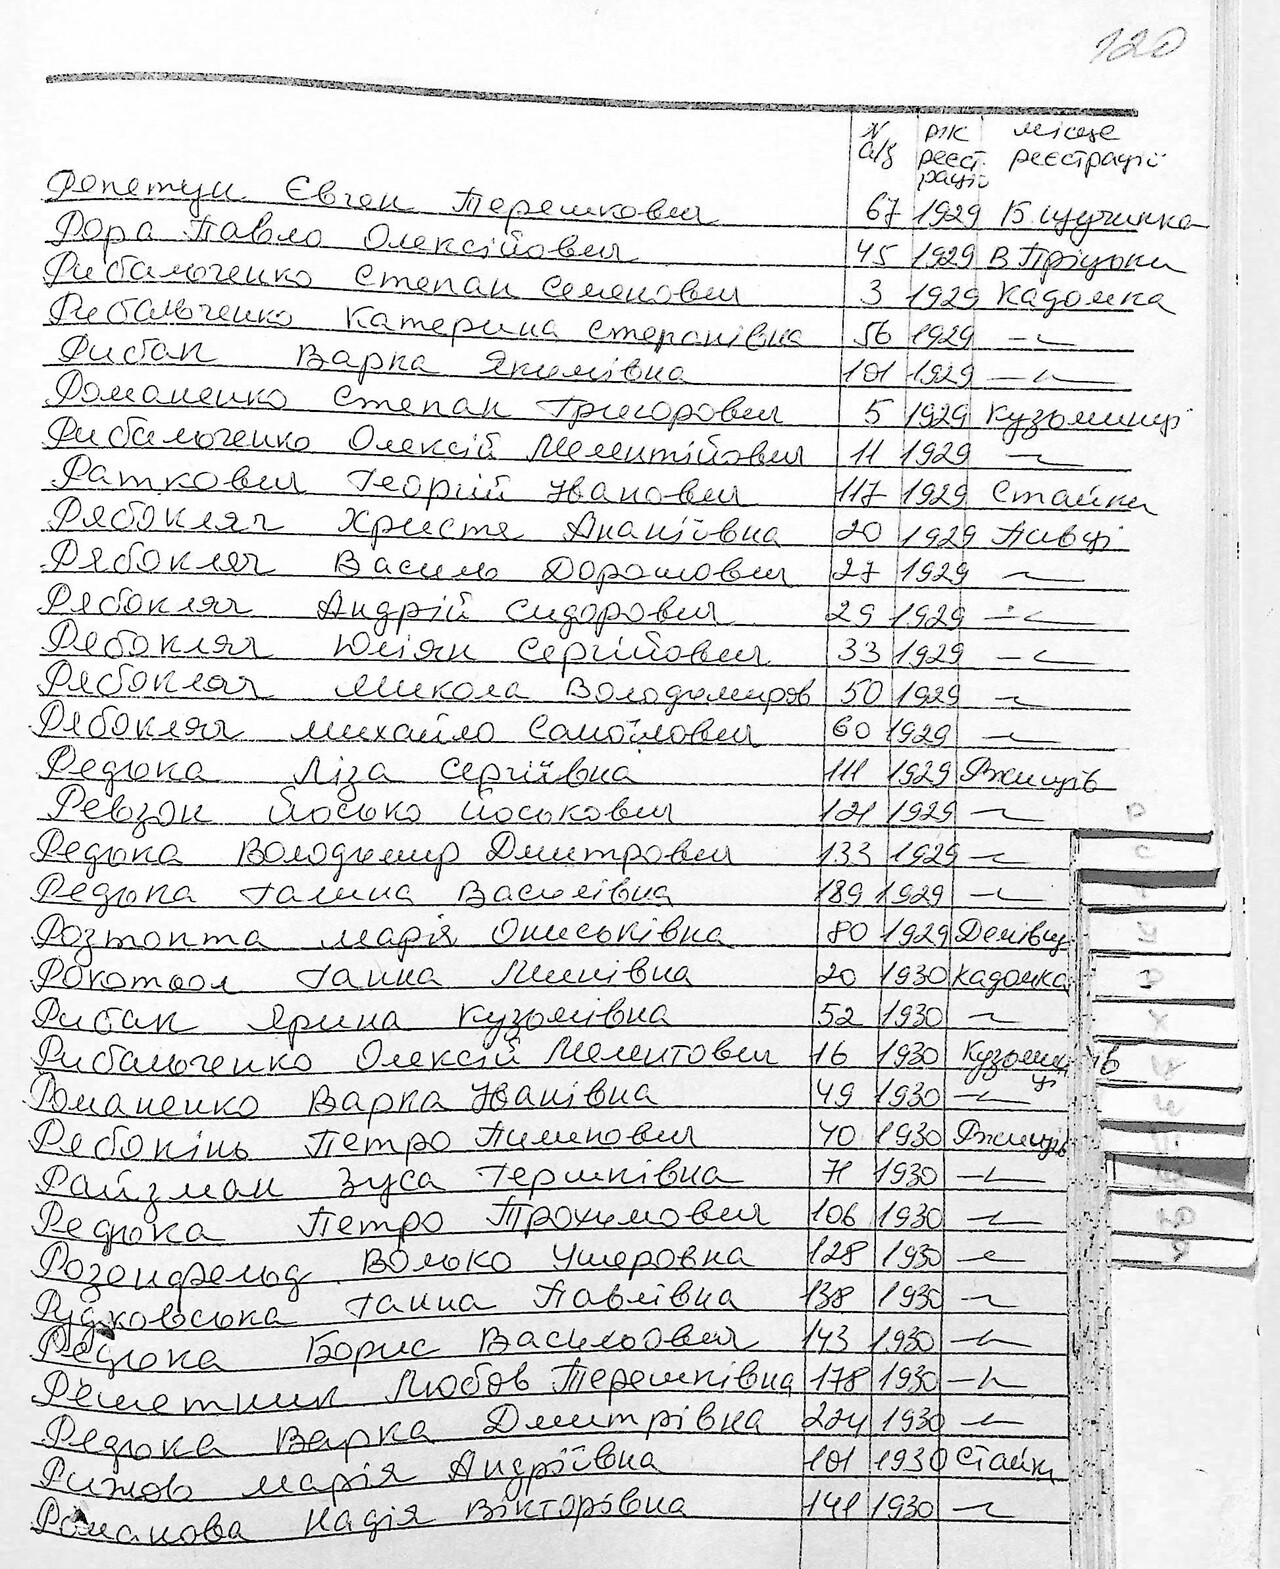 120
N а/з рік реєстрації місце реєстрації
Репетун Євген Терешкович 67 1929 Б. Щучинка
Рора Павло Олексійович 45 1929 В Пріцьки
Рибальченко Степан Семенович 3 1929 Кадомка
Рибальченко Катерина Степанівна 56 1929 -"-
Рибак Варка Якимівна 101 1929 -"-
Романенко Степан Григорович 5 1929 Кузьминці
Рибальченко Олексій Мелентійович 11 1929 -"-
Раткович Георгій Іванович 117 1929 Стайки
Рябокляч Христя Ананіївна 20 1929 Пивці
Рябокляч Василь Дорошович 27 1929 -"-
Рябокляч Андрій Сидорович 29 1929 -"-
Рябокляч Юліян Сергійович 33 1929 -"-
Рябокляч Микола Володимиров 50 1929 -"-
Рябокляч Михайло Самойлович 60 1929 -"-
Редька Ліза Сергіївна 111 1929 Ржищів
Ревзон Йосько Йоськович 121 1929 -"-
Редька Володимир Дмитрович 133 1929 -"-
Редька Галина Василівна 189 1929 -"-
Розтопта Марія Ониськівна 80 1929 Демівці
Рокотвол Ганна Минівна 20 1930 Кадомка
Рибак Ярина Кузьмівна 52 1930 -"-
Рибальченко Олексій Мелентович 16 1930 Кузьминці
Романенко Варка Іванівна 49 1930 -"-
Рябокінь Петро Пименович 40 1930 Ржищів
Райзман Зуса Гершківна 71 1930 -"-
Редька Петро Трохимович 106 1930 -"-
Розенфельд Волько Ушеровна 128 1930 -"-
Рудковська Ганна Павлівна 138 1930 -"-
Редька Борис Васильович 143 1930 -"-
Решетник Любов Терешківна 178 1930 -"-
Редька Варка Дмитрівна 224 1930 -"-
Рижов Марія Андріївна 101 1930 Стайки
Романова Надія Вікторівна 141 1930 -"-